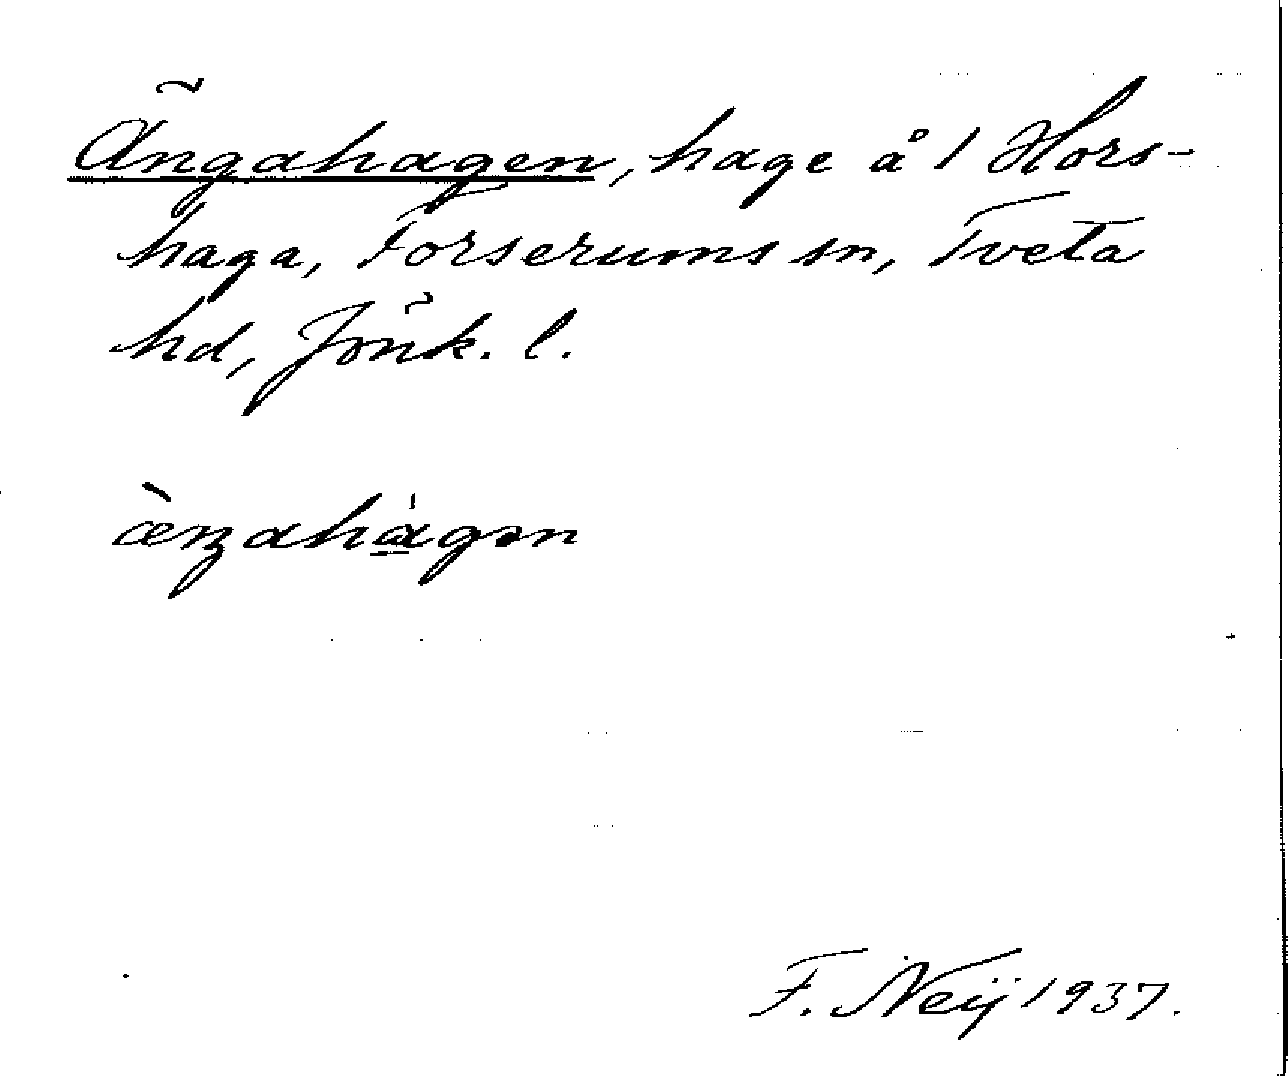 Ängahagen, hage å 1 Hors-
haga, Forserums sn, Tveta
hd, Jönk. l.
æ̀ŋahág̱ən
F. Neij 1937.